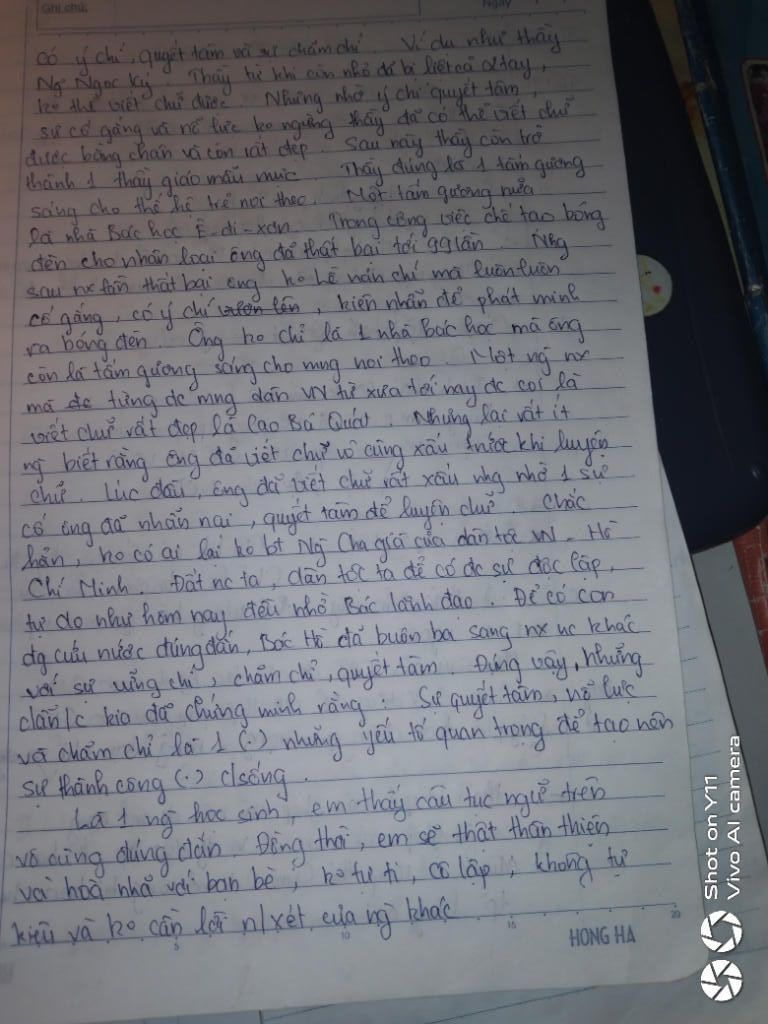 Ghi chú:
Ngày
có ý chí, quyết tâm và sự chăm chỉ. Ví dụ như thầy
Ng Ngọc Ký. Thầy từ khi còn nhỏ đã bị liệt cả 2 tay,
ko thể viết chữ được. Nhưng nhờ ý chí quyết tâm,
sự cố gắng và nỗ lực ko ngừng thầy đã có thể viết chữ
được bằng chân và còn rất đẹp. Sau này thầy còn trở
thành 1 thầy giáo mẫu mực. Thầy đúng là 1 tấm gương
sáng cho thế hệ trẻ noi theo. Một tấm gương nữa
là nhà Bác học Ê-di-xơn. Trong công việc chế tạo bóng
đèn cho nhân loại ông đã thất bại tới 99 lần. Nhg
sau nx lần thất bại ông ko hề nản chí mà luôn luôn
cố gắng, có ý chí vươn lên, kiên nhẫn để phát minh
ra bóng đèn. Ông ko chỉ là 1 nhà Bác học mà ông
còn là tấm gương sáng cho mng noi theo. Một ng nx
mà đc từng đc mng dân VN từ xưa tới nay đc coi là
viết chữ rất đẹp là Cao Bá Quát. Nhưng lại rất ít
ng biết rằng ông đã viết chữ vô cùng xấu trước khi luyện
chữ. Lúc đầu, ông đã viết chữ rất xấu nhg nhờ 1 sự
cố ông đã nhẫn nại, quyết tâm để luyện chữ. Chắc
hẳn, ko có ai lại ko bt Ng Cha già của dân tộc VN - Hồ
Chí Minh. Đất nc ta, dân tộc ta để có đc sự độc lập,
tự do như hôm nay đều nhờ Bác lãnh đạo. Để có con
đg cứu nước đúng đắn, Bác Hồ đã buôn ba sang nx nc khác
với sự vững chí, chăm chỉ, quyết tâm. Đúng vậy, những
dẫn/c kia đã chứng minh rằng: Sự quyết tâm, nỗ lực
và chăm chỉ là 1 (.) những yếu tố quan trọng để tạo nên
sự thành công (.) c/sống.
Là 1 ng học sinh, em thấy câu tục ngữ trên
vô cùng đúng đắn. Đồng thời, em sẽ thật thân thiện
và hoà nhã với bạn bè, ko tự ti, cô lập, không tự
kiêu và ko cần lời n/xét của ng khác
5 10 15 20
HONG HA
Shot on Y11
Vivo AI camera